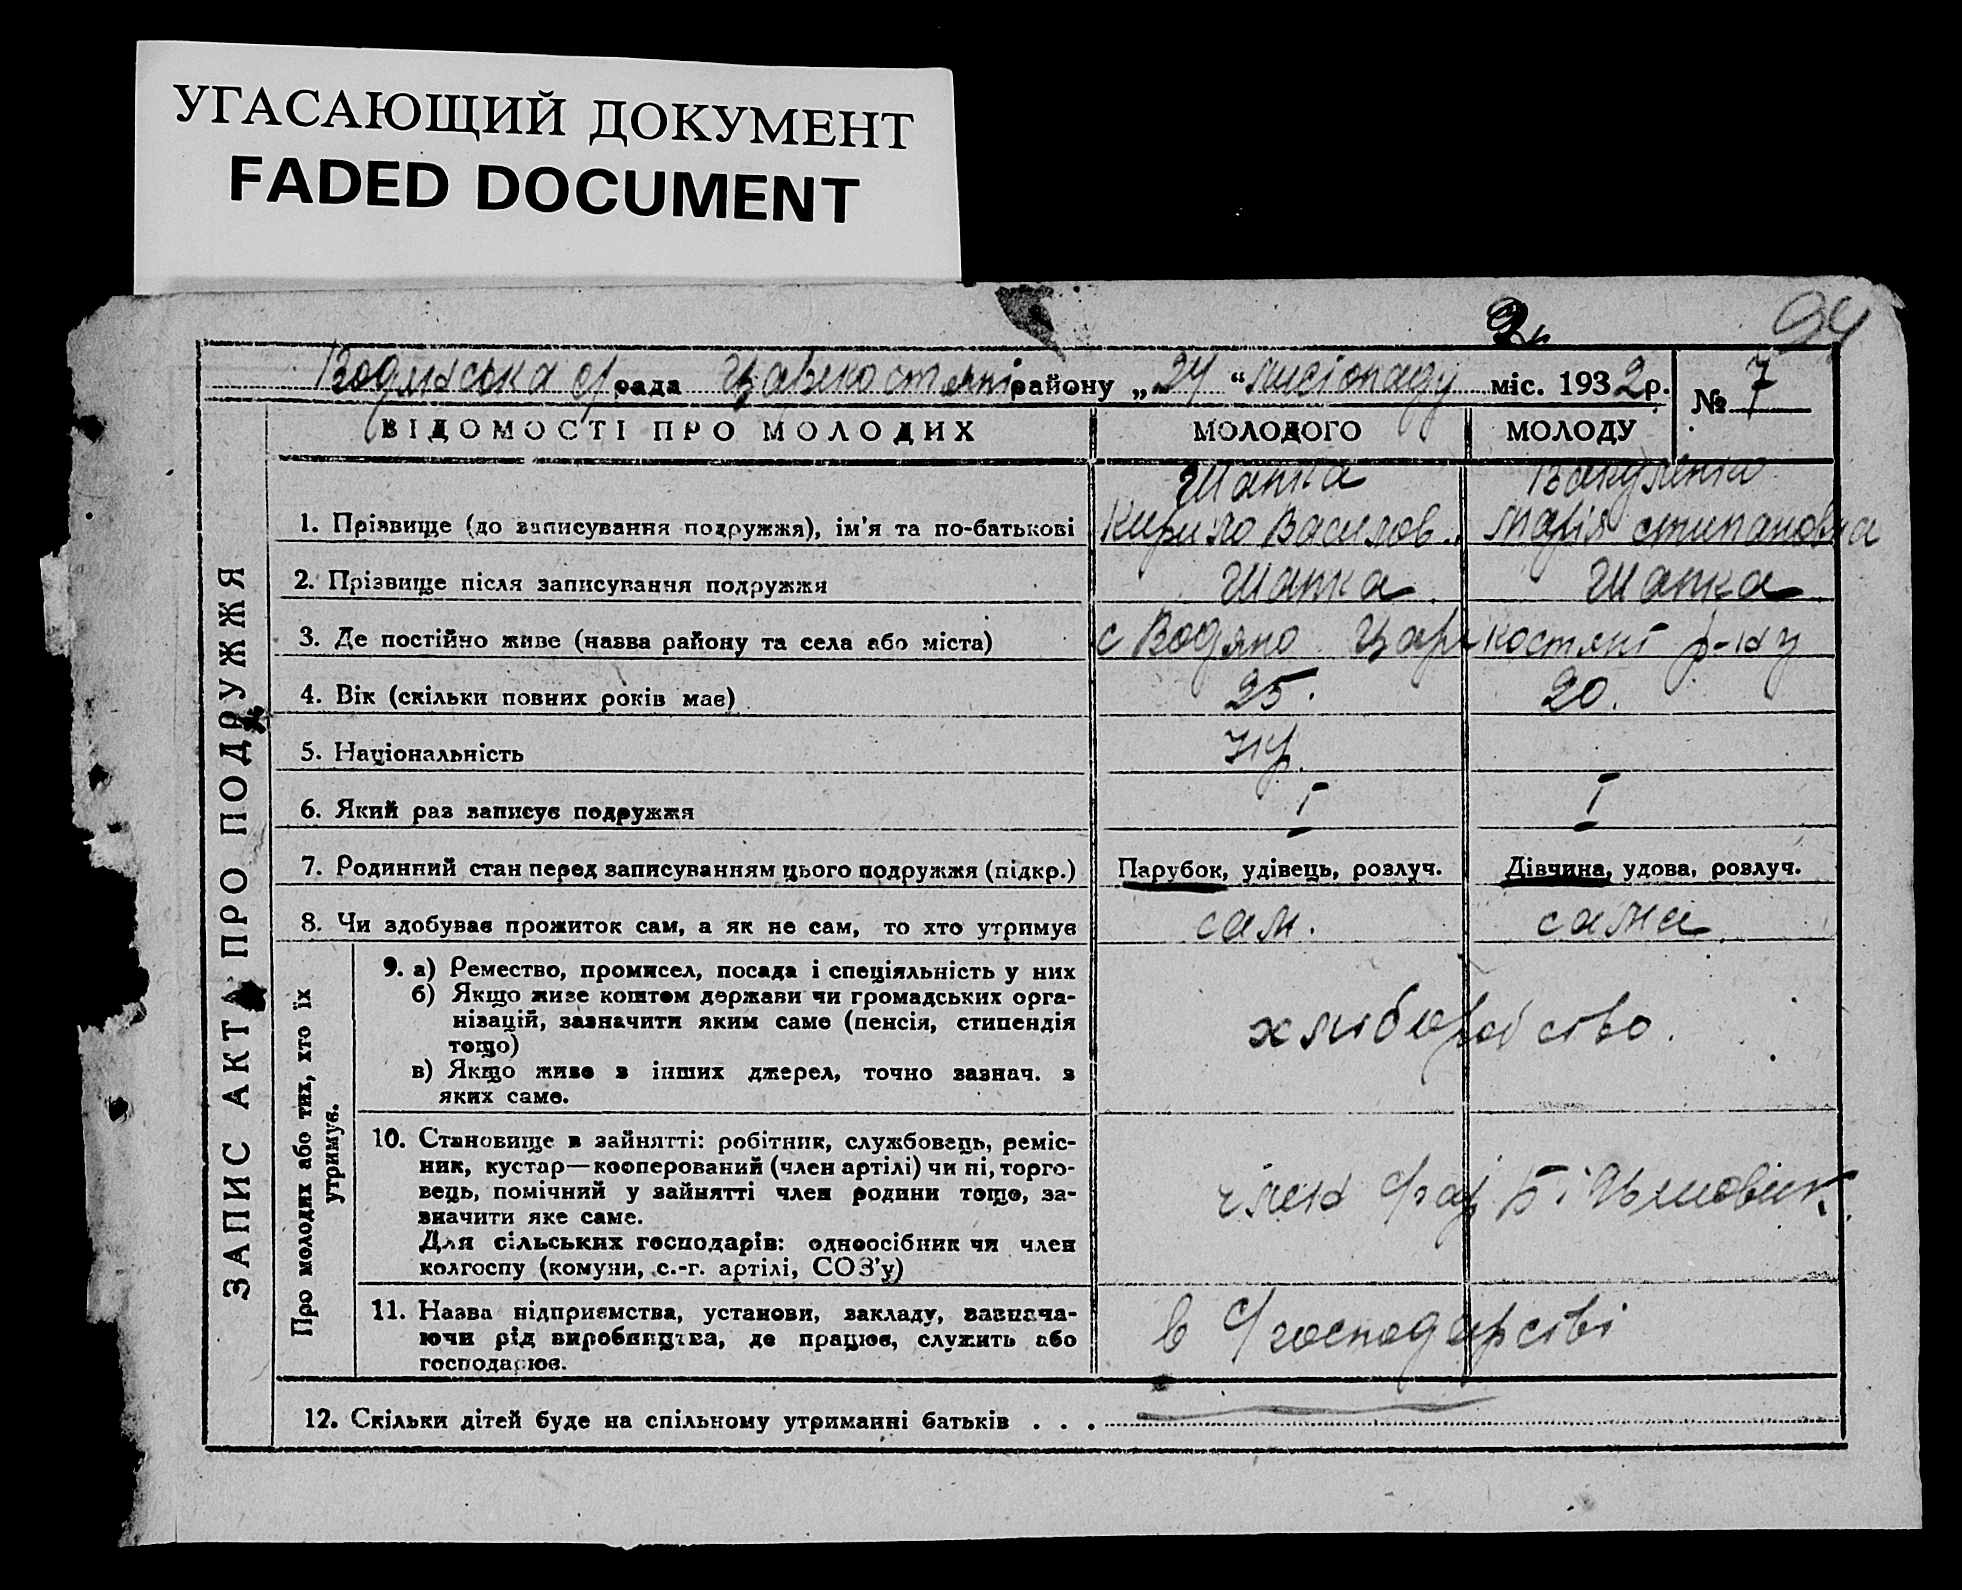 УГАСАЮЩИЙ ДОКУМЕНТ
FADED DOCUMENT
94
Водянська с/рада района „24“ листопаду міс. 1932 р.
№ 7
ВІДОМОСТІ ПРО МОЛОДИХ МОЛОДОГО МОЛОДУ
ЗАПИС АКТА ПРО ПОДРУЖЖЯ
Шапка Вакуленко
1. Прізвище (до записування подружжя), ім’я та по-батькові Кирило Василов. Марія степановна
2. Прізвище після записування подружжя Шапка Шапка
3. Де постійно живе (назва району та села або міста) с Водяно Царекостянт р-ну
4. Вік (скільки повних років має) 25. 20.
5. Національність Укр.
6. Який раз записує подружжя I I
7. Родинний стан перед записуванням цього подружжя (підкр.) Парубок, удівець, розлуч. Дівчина, удова, розлуч.
8. Чи здобуває прожиток сам, а як не сам, то хто утримує сам. сама
Про молодих або тих, хто їх
утримує.
9. а) Ремество, промисел, посада і спеціяльність у них
б) Якщо живе коштом держави чи громадських орга-
нізацій, зазначити яким саме (пенсія, стипендія
тощо)
в) Якщо живе з інших джерел, точно зазнач. з
яких саме.
хлиборобство.
10. Становище в зайнятті: робітник, службовець, реміс-
ник, кустар—кооперований (член артілі) чи ні, торго-
вець, помічний у зайнятті член родини тощо, за-
значити яке саме.
Для сільських господарів: одноосібник чи член
колгоспу (комуни, с.-г. артілі, СОЗ’у)
член Більшовик
11. Назва підприємства, установи, закладу, зазнача-
ючи рід виробництва, де працює, служить або
господарює.
в с/господарстві
12. Скільки дітей буде на спільному утриманні батьків . . .